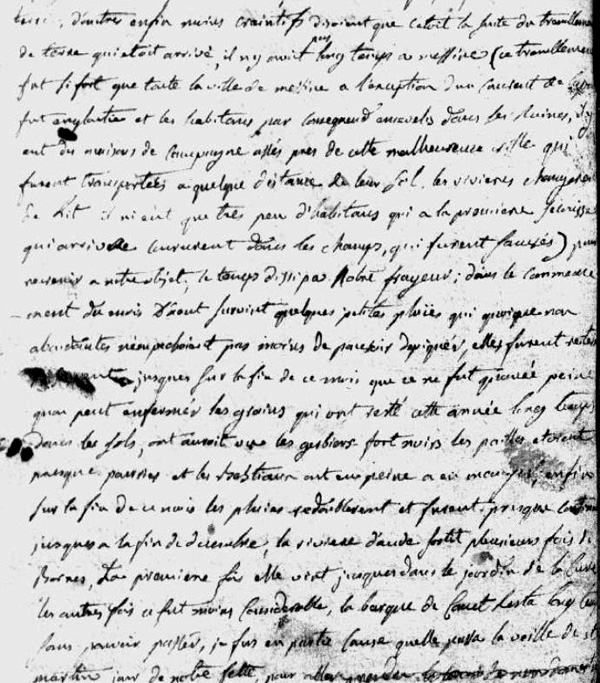 d'autres enfin moins craintifs disoient que cetoit la suite du tremblement
de terre qui etoit arrivé, il ny avoit pas long temps a messine (ce tremblement
fut si fort que toute la ville de messine a l'exception d'un couvent de
fut angloutie et les habitans par consequend ensevelis dans les ruines, il y
eut des maisons de campagne assés pres de cette malheureuse ville qui
furent transportées a quelque distance de leur sol, les rivieres changerent
de lit il ni eut que tres peu d'habitans qui a la premiere secousse
qui arriva coururent dans les champs, qui furent sauvés) pour
revenir a notre objet, le temps dissipa notre frayeur; dans le commence
ment du mois d'aout survint quelques petites pluies qui quoique non
abondantes n'empechoient pas moins de pouvoir depiquer, elles furent
jusques sur la fin de ce mois que ce ne fut qu'avec peine
quon peut enfermer les grains qui ont resté cette année long temps
dans les sols, ont auroit vu les gerbiers fort noirs les pailles etoient
presque pourries et les bestiaux ont eu peine a en manger, enfin
sur la fin de ce mois les pluies redoublerent et furent presque
jusques a la fin de decembre, la riviere d'aude sortit plusieurs fois de
Bornes, La premiere fois elle vint jusques dans le jardin de la Cure
les autres fois ce fut moins Considerable, la barque de Canet resta long
sans pouvoir passer, je fus en partie Cause quelle passa la veille de st
martin jour de notre fette, pour aller